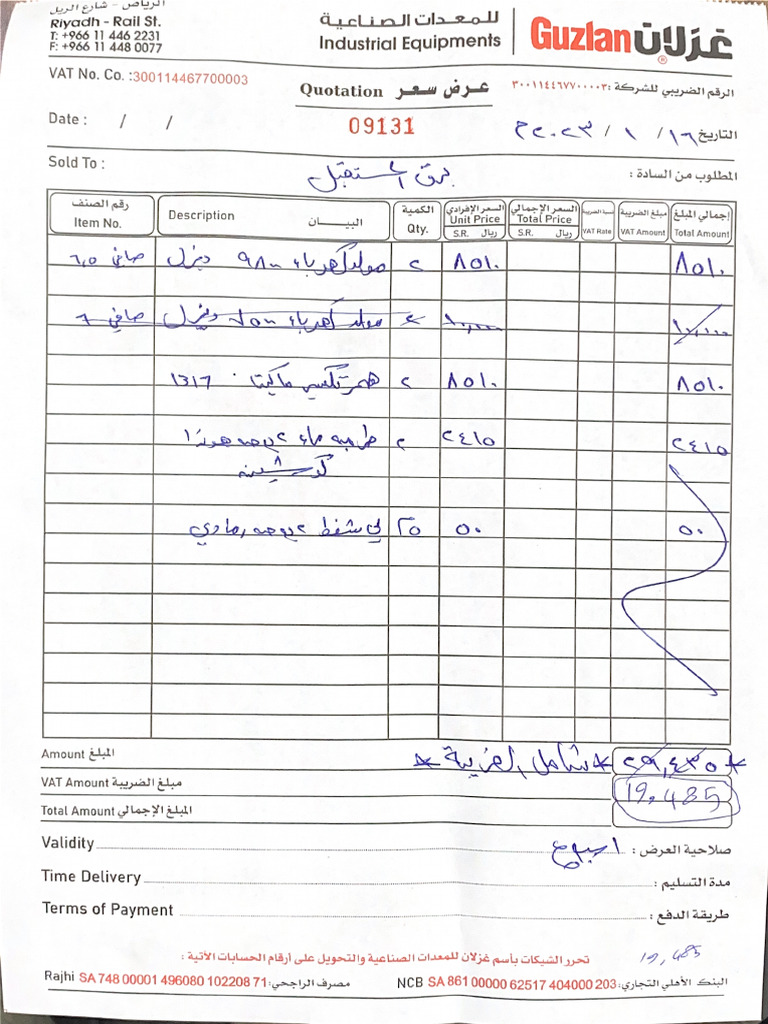 الرياض - شارع الريل
Riyadh - Rail St.
T: +966 11 446 2231
F: +966 11 448 0077
للمعدات الصناعية
Industrial Equipments
Guzlan غزلان
VAT No. Co. :300114467700003
Quotation عرض سعر
الرقم الضريبي للشركة :٣٠٠١١٤٤٦٧٧٠٠٠٠٣
Date : / /
09131
التاريخ ١٦ / ١ / ٢٠٢٣م
Sold To :
برق المستقبل
المطلوب من السادة :
رقم الصنف Item No.
Description البيــــان
الكمية Qty.
السعر الإفرادي Unit Price S.R. ريال
السعر الإجمالي Total Price S.R. ريال
نسبة الضريبة VAT Rate
مبلغ الضريبة VAT Amount
إجمالي المبلغ Total Amount
مولد كهرباء ٩٨٠٠ ديزل صافي ٦,٥ ٢ ٨٥١٠ ٨٥١٠
مولد كهرباء ديزل صافي ٦ ١٠,٠٠٠ ١٠,٠٠٠
همر تكسير ماكيتا ١٣١٧ ٢ ٨٥١٠ ٨٥١٠
طرمبه ماء ٢ بوصه هوندا ٢ ٢٤١٥ ٢٤١٥
لي شفط ٢ بوصه رمادي ٢٥ ٥٠ ٥٠
Amount المبلغ
*شامل الضريبة* ٢٩,٤٣٥*
VAT Amount مبلغ الضريبة
19,485
Total Amount المبلغ الإجمالي
Validity
صلاحية العرض : اسبوع
Time Delivery
مدة التسليم :
Terms of Payment
طريقة الدفع :
19,485
تحرر الشيكات بأسم غزلان للمعدات الصناعية والتحويل على أرقام الحسابات الأتية :
Rajhi SA 748 00001 496080 102208 71 :مصرف الراجحي
NCB SA 861 00000 62517 404000 203 :البنك الأهلي التجاري